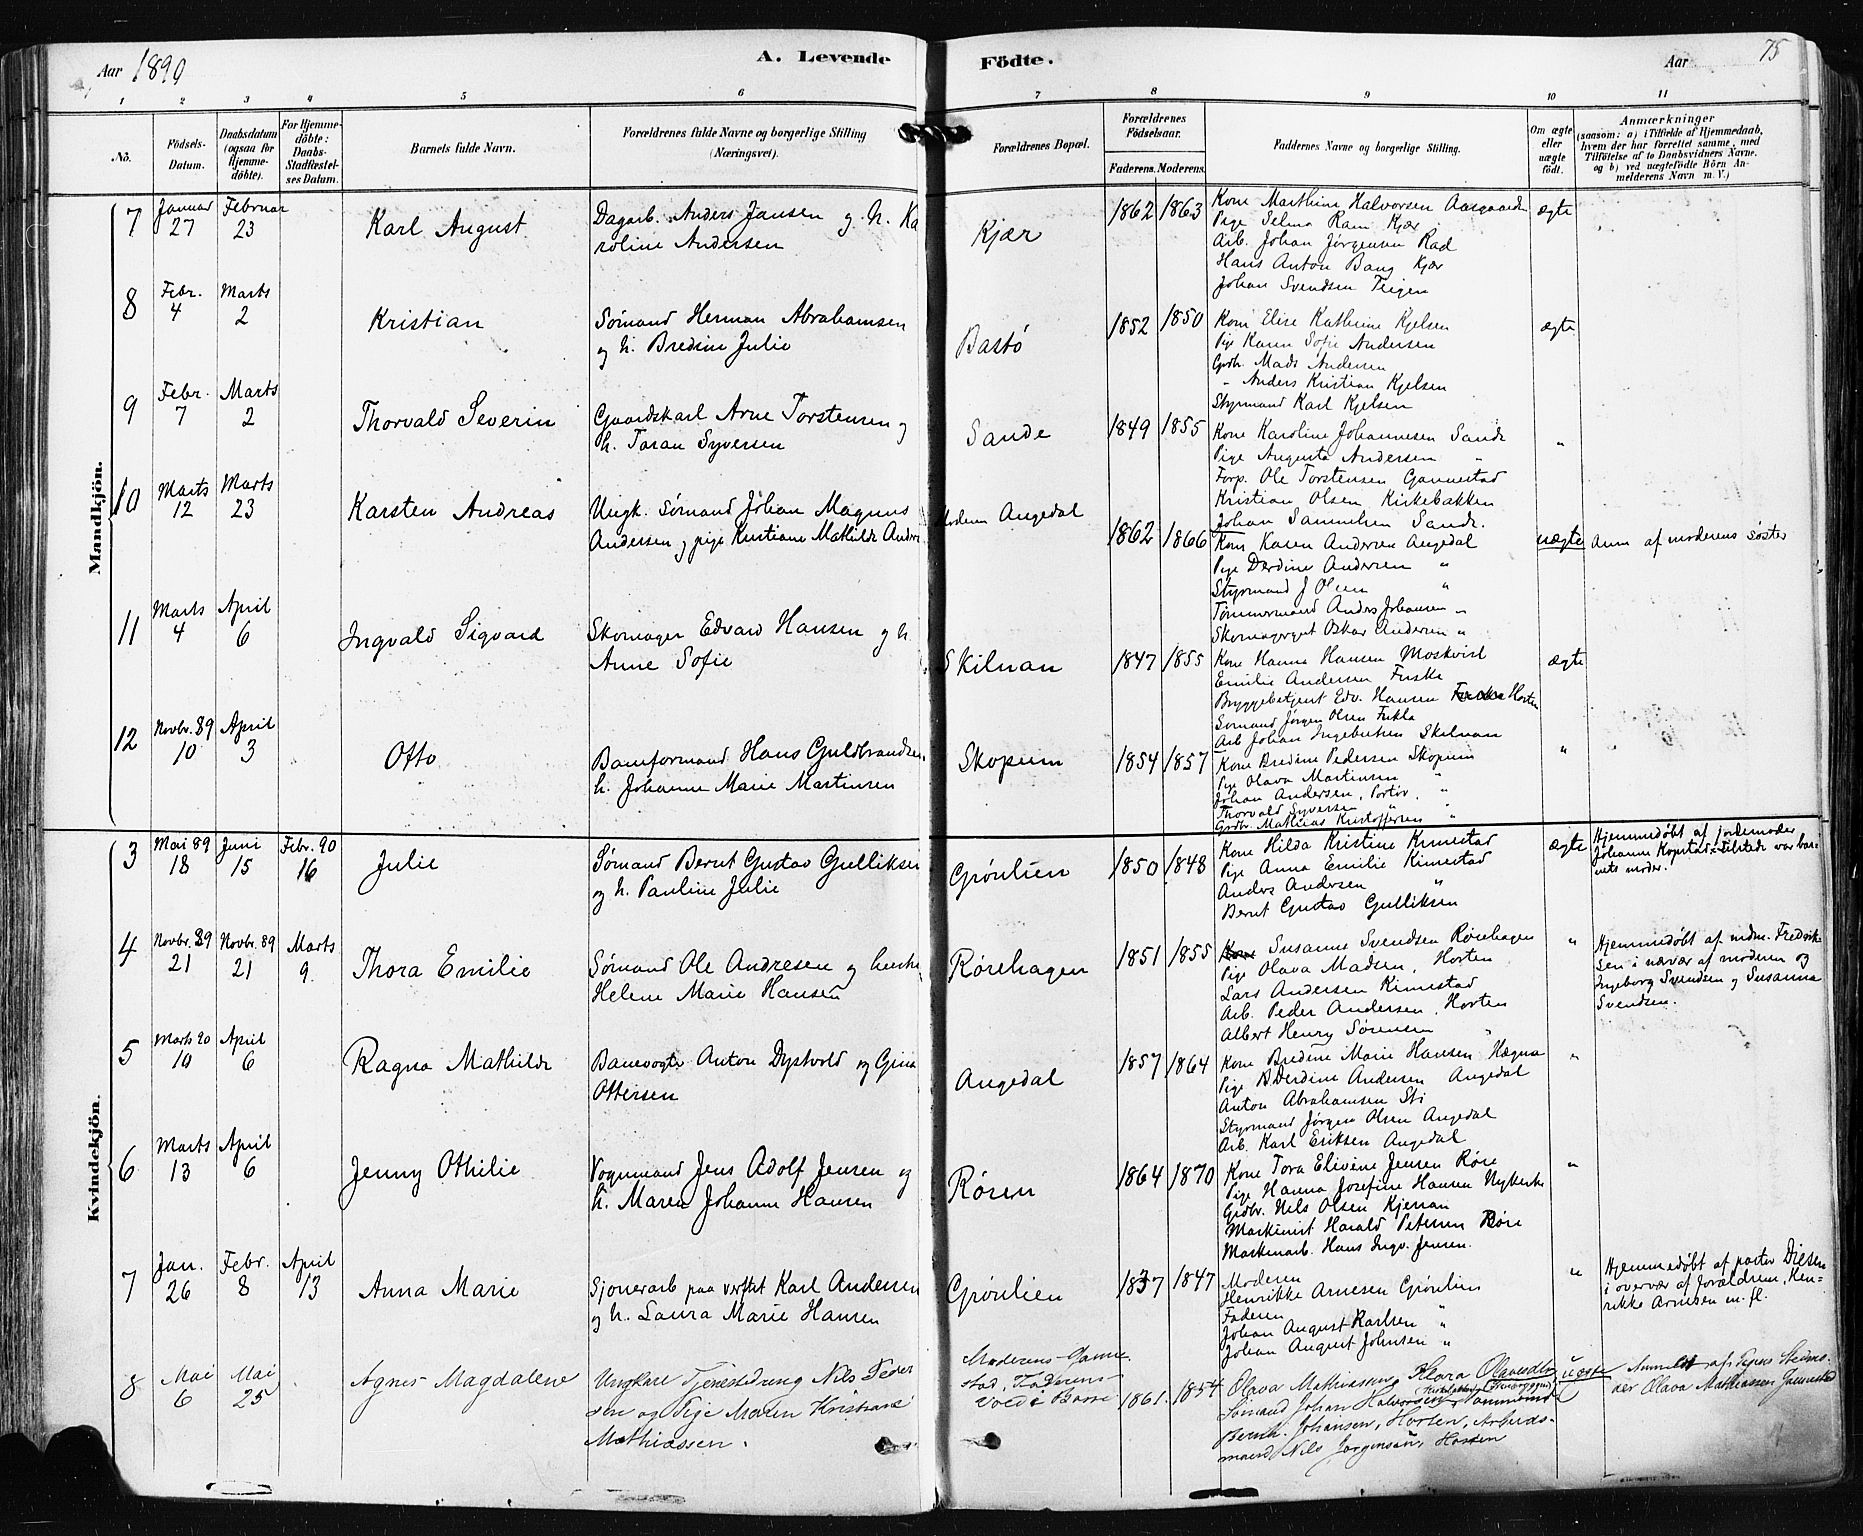 Aar 1890
A. Levende
Födte.
Aar
75
1 2 3 4 5 6 7 8 9 10 11
No.
Födsels-Datum.
Daabsdatum (ogsaa for Hjemmedöbte).
For Hjemmedöbte: Daabs-Stadfæstelses Datum.
Barnets fulde Navn.
Forældrenes fulde Navne og borgerlige Stilling (Næringsvei).
Forældrenes Bopæl.
Forældrenes Födselsaar.
Faderens. Moderens.
Faddernes Navne og borgerlige Stilling.
Om ægte eller uægte födt.
Anmærkninger
(saasom: a) i Tilfælde af Hjemmedaab, hvem der har forrettet samme, med Tilföielse af to Daabsvidners Navne, og b) ved uægtefödte Börn Anmelderens Navn m. V.)
Mandkjön.
7 Januar 27 Februar 23 Karl August
Dagarb. Anders Jansen og h. Ka
roline Andersen
Kjær 1862 1863
Kone Marthine Halvorsen Aasgaarden
Pige Selma Ram Kjær
Arb. Johan Jørgensen Rød
Hans Anton Bang Kjær
Johan Svendsen Teigen
ægte
8 Febr. 4 Marts 2 Kristian
Sømand Herman Abrahamsen
og h. Bredine Julie
Bastö 1852 1850
Kone Elise Kathrine Kjelsen
Pige Karen Sofie Andersen
Grdbr. Mads Andersen
" Anders Kristian Kjelsen
Styrmand Karl Kjelsen
ægte
9 Febr. 7 Marts 2 Thorvald Severin
Gaardskarl Arne Torstensen og
h. Taran Syversen
Sande 1849 1855
Kone Karoline Johannesen Sande
Pige Augusta Andersen "
Forp. Ole Torstensen Gannestad
Kristian Olsen Kirkebakken
Johan Samuelsen Sande.
"
10 Marts 12 Marts 23 Karsten Andreas
Ungk. Sømand Johan Magnus
Andersen og pige Kristiane Mathilde Anders
Moderen Angedal 1862 1866
Kone Karen Andersen Angedal
Pige Derdine Andersen "
Styrmand J Olsen "
Tømmermand Anders Johansen "
Skomagergut Oskar Andersen "
uægte
Anm af moderens søster
11 Marts 4 April 6 Ingvald Sigvard
Skomager Edvard Hansen og h.
Anne Sofie
Skilnan 1847 1855
Kone Hanna Hansen Moskvist
Emilie Andersen Fuske
Bryggebetjent Edv. Hansen Horten
Sømand Jørgen Olsen
Arb Johan Ingebretsen Skilnan
ægte
12 Novbr. 89 10 April 3 Otto
Baneformand Hans Guldbrandsen
h. Johanne Marie Martinsen
Skopum 1854 1857
Kone Bredine Pedersen Skopum
Pige Olava Martinsen "
Johan Andersen, Portör, "
Thorvald Syversen "
Grdbr. Mathias Kristoffersen "
"
Kvindekjön.
3 Mai 89 18 Juni 15 Febr. 90 16 Julie
Sømand Bernt Gustav Gulliksen
og h. Pauline Julie
Grönlien 1850 1848
Kone Hilda Kristine Kimestad
Pige Anna Emilie Kimestad
Anders Andersen "
Bernt Gustav Gulliksen
ægte
Hjemmedöbt af jordemoder
Johanne Kopstad. Tilstede var bar-
nets moder.
4 Novbr. 89 21 Novbr. 89 21 Marts 9. Thora Emilie
Sømand Ole Andresen og hustru
Helene Marie Hansen
Rörehagen 1851 1855
Kone Susanne Svendsen Rörehagen
Pige Olava Madsen, Horten
Lars Andersen Kimestad
Arb. Peder Andersen, Horten
Albert Henry Sörensen "
"
Hjemmedöbt af mdm. Fredrik-
sen i nærvær af moderen og
Ingeborg Svendsen og Susanna
Svendsen.
5 Marts 90 10 April 6 Ragna Mathilde
Banevogter Anton Dystvold og Gina
Ottersen
Angedal 1857 1864
Kone Bredine Marie Hansen Hægna
Pige Derdine Andersen Angedal
Anton Abrahamsen Sti
Styrmand Jörgen Olsen Angedal
Arb. Karl Eriksen Angedal
"
6 Marts 13 April 6 Jenny Othilie
Vognmand Jens Adolf Jensen og
h. Maren Johanne Hansen
Rören 1864 1870
Kone Tora Elivine Jensen Röre
Pige Hanna Josefine Hansen Nykirke
Grdbr. Nils Olsen Kjenan
Maskinist Harald Petersen Röre
Maskinarb. Hans Ingv. Jensen.
"
7 Jan. 26 Febr. 8 April 13 Anna Marie
Sjouerarb paa verftet Karl Andersen
og h. Laura Marie Hansen
Grönlien 1837 1847
Moderen
Henrikke Arnesen Grönlien
Faderen
Johan August Karlsen "
Johan August Johnsen "
"
Hjemmedöbt af pastor Dielsen
i overvær af forældrene, Hen-
rikke Arnesen m. fl.
8 Mai 6 Mai 25 Agnes Magdalene
Ungkarl Tjenestedreng Nils Peder
sen og Pige Maren Kristiane
Mathiassen.
Moderens Ganne-
stad, Faderens
Vold i Borre
1861. 1854
Olava Mathiassen, Klara
Sömand Johan Halvorsen, Tömmermd
Bernh. Johansen, Horten, Arbeids-
mand Nils Jørgensen, Horten
uægte
Anmeldt af Pigens Stedmo-
der Olava Mathiassen Gannestad